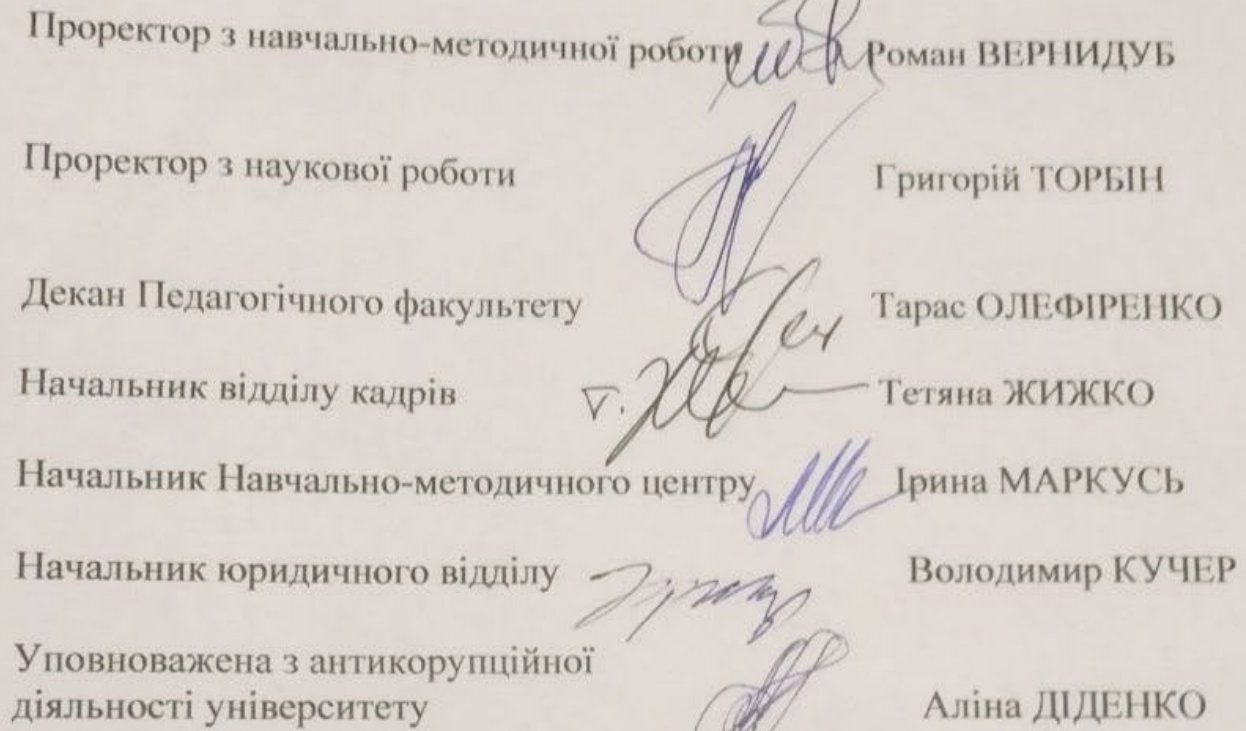 Проректор з навчально-методичної роботи Роман ВЕРНИДУБ
Проректор з наукової роботи Григорій ТОРБІН
Декан Педагогічного факультету Тарас ОЛЕФІРЕНКО
Начальник відділу кадрів Тетяна ЖИЖКО
Начальник Навчально-методичного центру Ірина МАРКУСЬ
Начальник юридичного відділу Володимир КУЧЕР
Уповноважена з антикорупційної
діяльності університету Аліна ДІДЕНКО